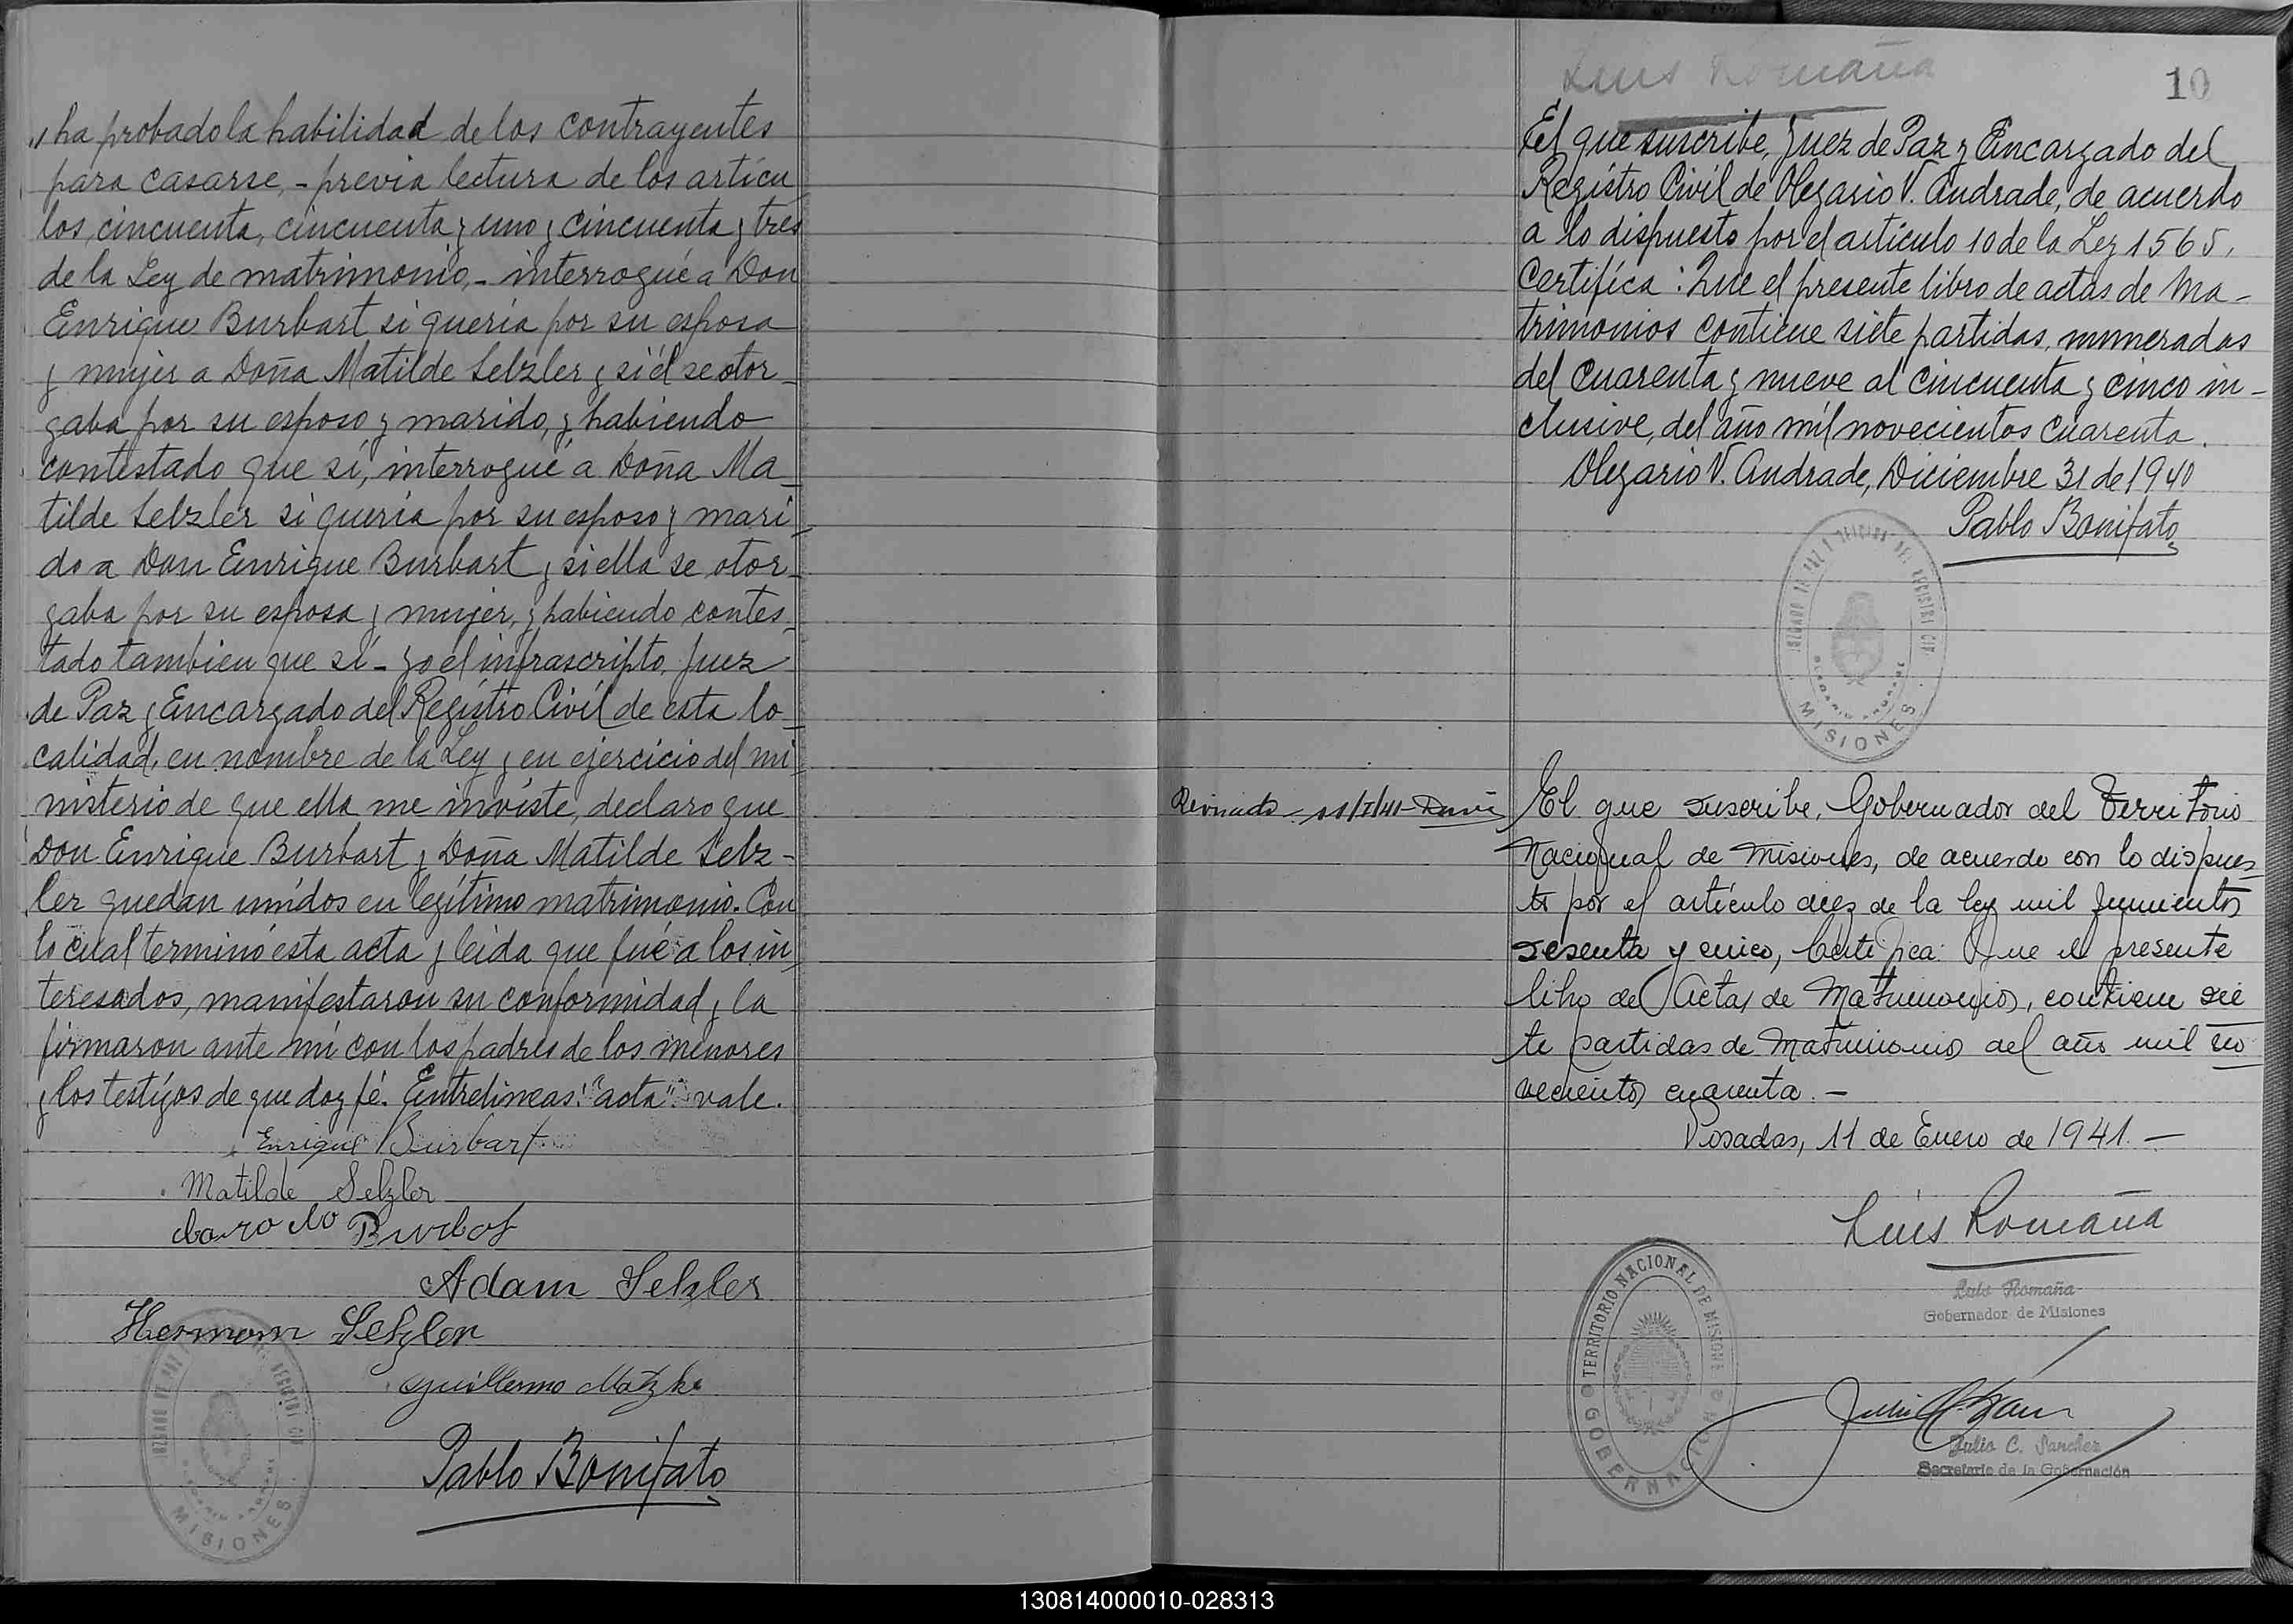 ha probado la habilidad de los contrayentes
para casarse,- previa lectura de los artícu
los, cincuenta, cincuenta y uno y cincuenta y tres
de la Ley de matrimonio,- interrogué a Don
Enrique Burbart si quería por su esposa
y mujer a Doña Matilde Selzler y si él se otor-
gaba por su esposo y marido, y habiendo
contestado que sí, interrogué a Doña Ma-
tilde Selzler si quería por su esposo y mari-
do a Don Enrique Burbart y si ella se otor-
gaba por su esposa y mujer, y habiendo contes-
tado tambien que sí - yo el infrascripto, Juez
de Paz y Encargado del Registro Civil de esta lo-
calidad, en nombre de la Ley y en ejercicio del mi-
nisterio de que ella me inviste, declaro que
Don Enrique Burbart y Doña Matilde Selz-
ler quedan unidos en legítimo matrimonio. Con
lo cual terminó esta acta y leida que fué a los in-
teresados, manifestaron su conformidad y la
firmaron ante mí con los padres de los menores
y los testigos de que doy fé. Entrelineas: "acta" vale.
Enrique Burbart
Matilde Selzler
Adam Selzler
Hermann Selzler
Guillermo Matzke
Pablo Bonifato
MISIONES
Luis Romaña
10
El que suscribe, Juez de Paz y Encargado del
Registro Civil de Olegario V. Andrade, de acuerdo
a lo dispuesto por el artículo 10 de la Ley 1565,
Certifica: Que el presente libro de actas de Ma-
trimonios contiene siete partidas, numeradas
del cuarenta y nueve al cincuenta y cinco in-
clusive, del año mil novecientos cuarenta.
Olegario V. Andrade, Diciembre 31 de 1940
Pablo Bonifato
MISIONES
11/I/41
El que suscribe, Gobernador del Territorio
Nacional de Misiones, de acuerdo con lo dispues-
to por el artículo diez de la ley mil quinientos
sesenta y cinco, Certifica: Que el presente
libro de Actas de Matrimonios, contiene sie
te partidas de Matrimonios del año mil no
vecientos cuarenta.-
Posadas, 11 de Enero de 1941.-
Luis Romaña
Luis Romaña
Gobernador de Misiones
TERRITORIO NACIONAL DE MISIONES
GOBERNACION
Julio C. Sanchez
Secretario de la Gobernación
130814000010-028313